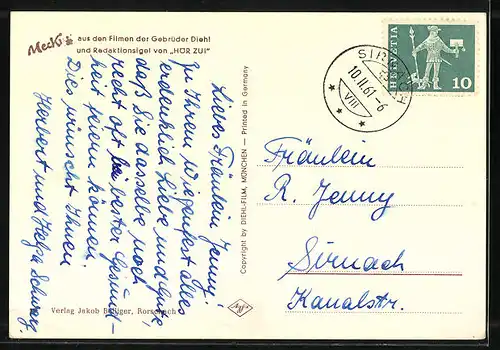 Mecki
aus den Filmen der Gebrüder Diehl
und Redaktionsigel von "HÖR ZU!"
Liebes Fräulein Jenny!
Zu Ihrem Wiegenfest alles
erdenklich Liebe und Gute,
daß Sie dasselbe noch
recht oft bei bester Gesund-
heit feiern können.
Dies wünscht Ihnen
Herbert und Helga Schwarz.
Verlag Jakob Bolliger, Rorschach
Copyright by DIEHL-FILM, MÜNCHEN — Printed in Germany
SIRNACH
10.II.61-6
VIII
HELVETIA
10
Fräulein
R. Jenny
Sirnach
Kanalstr.